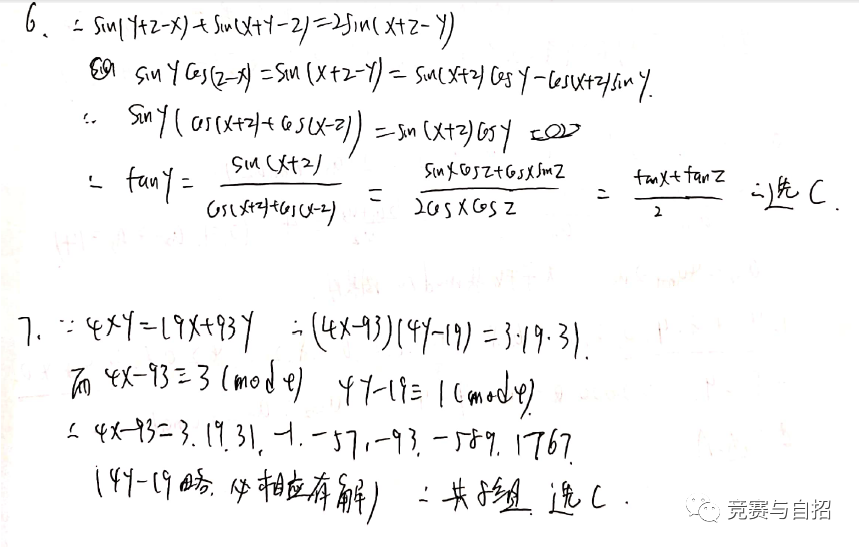 6. ∴ sin(y+z-x)+sin(x+y-z)=2sin(x+z-y)
sin y cos(z-x)=sin(x+z-y)=sin(x+z)cos y-cos(x+z)sin y.
∴ sin y(cos(x+z)+cos(x-z))=sin(x+z)cos y
∴ tan y = sin(x+z)/(cos(x+z)+cos(x-z)) = (sin x cos z+cos x sin z)/(2cos x cos z) = (tan x+tan z)/2 ∴选C.
7. ∵ 4xy=19x+93y ∴(4x-93)(4y-19)=3·19·31.
而 4x-93≡3(mod 4) 4y-19≡1(mod 4)
∴ 4x-93=3.19.31.-1.-57.-93.-589.1767.
(4y-19略.必相应有解) ∴共8组.选C.
竞赛与自招